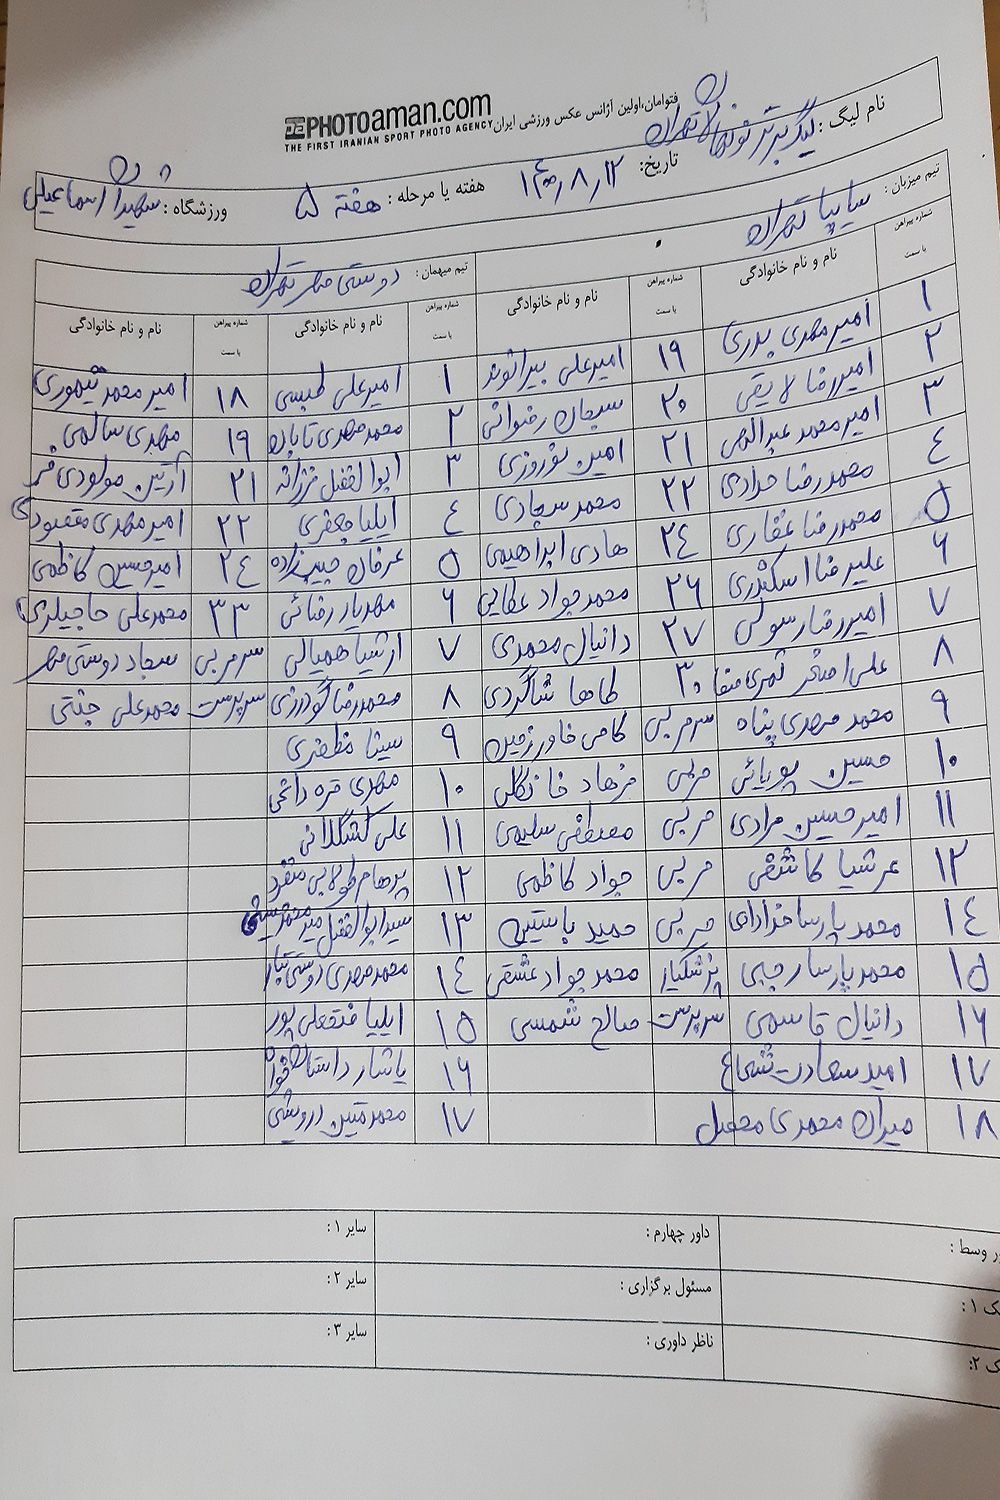 PHOTOaman.com
THE FIRST IRANIAN SPORT PHOTO AGENCY
فتوامان،اولین آژانس عکس ورزشی ایران
نام لیگ : لیگ برتر نونهالان تهران
تاریخ: ۱۴۰۰٫۸٫۱۲
هفته یا مرحله : هفته ۵
ورزشگاه : شهیدان اسماعیلی
تیم میزبان : سایپا تهران
تیم میهمان : دوستی مهر تهران
شماره پیراهن یا سمت نام و نام خانوادگی شماره پیراهن یا سمت نام و نام خانوادگی شماره پیراهن یا سمت نام و نام خانوادگی شماره پیراهن یا سمت نام و نام خانوادگی
۱ امیرمهدی بدری ۱۹ امیرعلی بیرانوند ۱ امیرعلی طبسی ۱۸ امیرمحمد تیموری
۲ امیررضا لایقی ۲۰ سبحان رضوانی ۲ محمدمهدی تابان ۱۹ مهدی سالمی
۳ امیرمحمد عبدالهی ۲۱ امین نوروزی ۳ ابوالفضل فرزانه ۲۱ آرتین مولودی فر
۴ محمدرضا حدادی ۲۲ محمد سجادی ۴ ایلیا جعفری ۲۲ امیرمهدی مقصودی
۵ محمدرضا غفاری ۲۴ هادی ابراهیمی ۵ عرفان حبیب زاده ۲۴ امیرحسین کاظمی
۶ علیرضا اسکندری ۲۶ محمدجواد عطایی ۶ مهدیار رضائی ۳۳ محمدعلی حاجیلری
۷ امیررضا رسولی ۲۷ دانیال محمدی ۷ ارشیا همیالی سرمربی سجاد دوستی مهر
۸ علی اصغر ثمری صفا ۳۰ طاها شاگردی ۸ محمدرضا گودرزی سرپرست محمدعلی جنتی
۹ محمد مهدی پناه سرمربی کامی خاورزمین ۹ سینا مظفری
۱۰ حسین پوریائی مربی فرهاد خانگلی ۱۰ مهدی قره داغی
۱۱ امیرحسین مرادی مربی مصطفی سلیمی ۱۱ علی کشگلانی
۱۲ عرشیا کاشفی مربی جواد کاظمی ۱۲ پرهام طولابی منفرد
۱۴ محمدپارسا خدادای مربی حمید باستین ۱۳ سیدابوالفضل میرمحمدحسینی
۱۵ محمدپارسا رجبی پزشکیار محمدجواد عشقی ۱۴ محمدمهدی روشنی تبار
۱۶ دانیال قاسمی سرپرست صالح شمسی ۱۵ ایلیا فتحعلی پور
۱۷ امید سعادت شعاع ۱۶ یاشار داستان
۱۸ میران محمدی محصل ۱۷ محمدمتین درویشی
ور وسط : داور چهارم : سایر ۱ :
ک ۱ : مسئول برگزاری : سایر ۲ :
ک ۲: ناظر داوری : سایر ۳ :